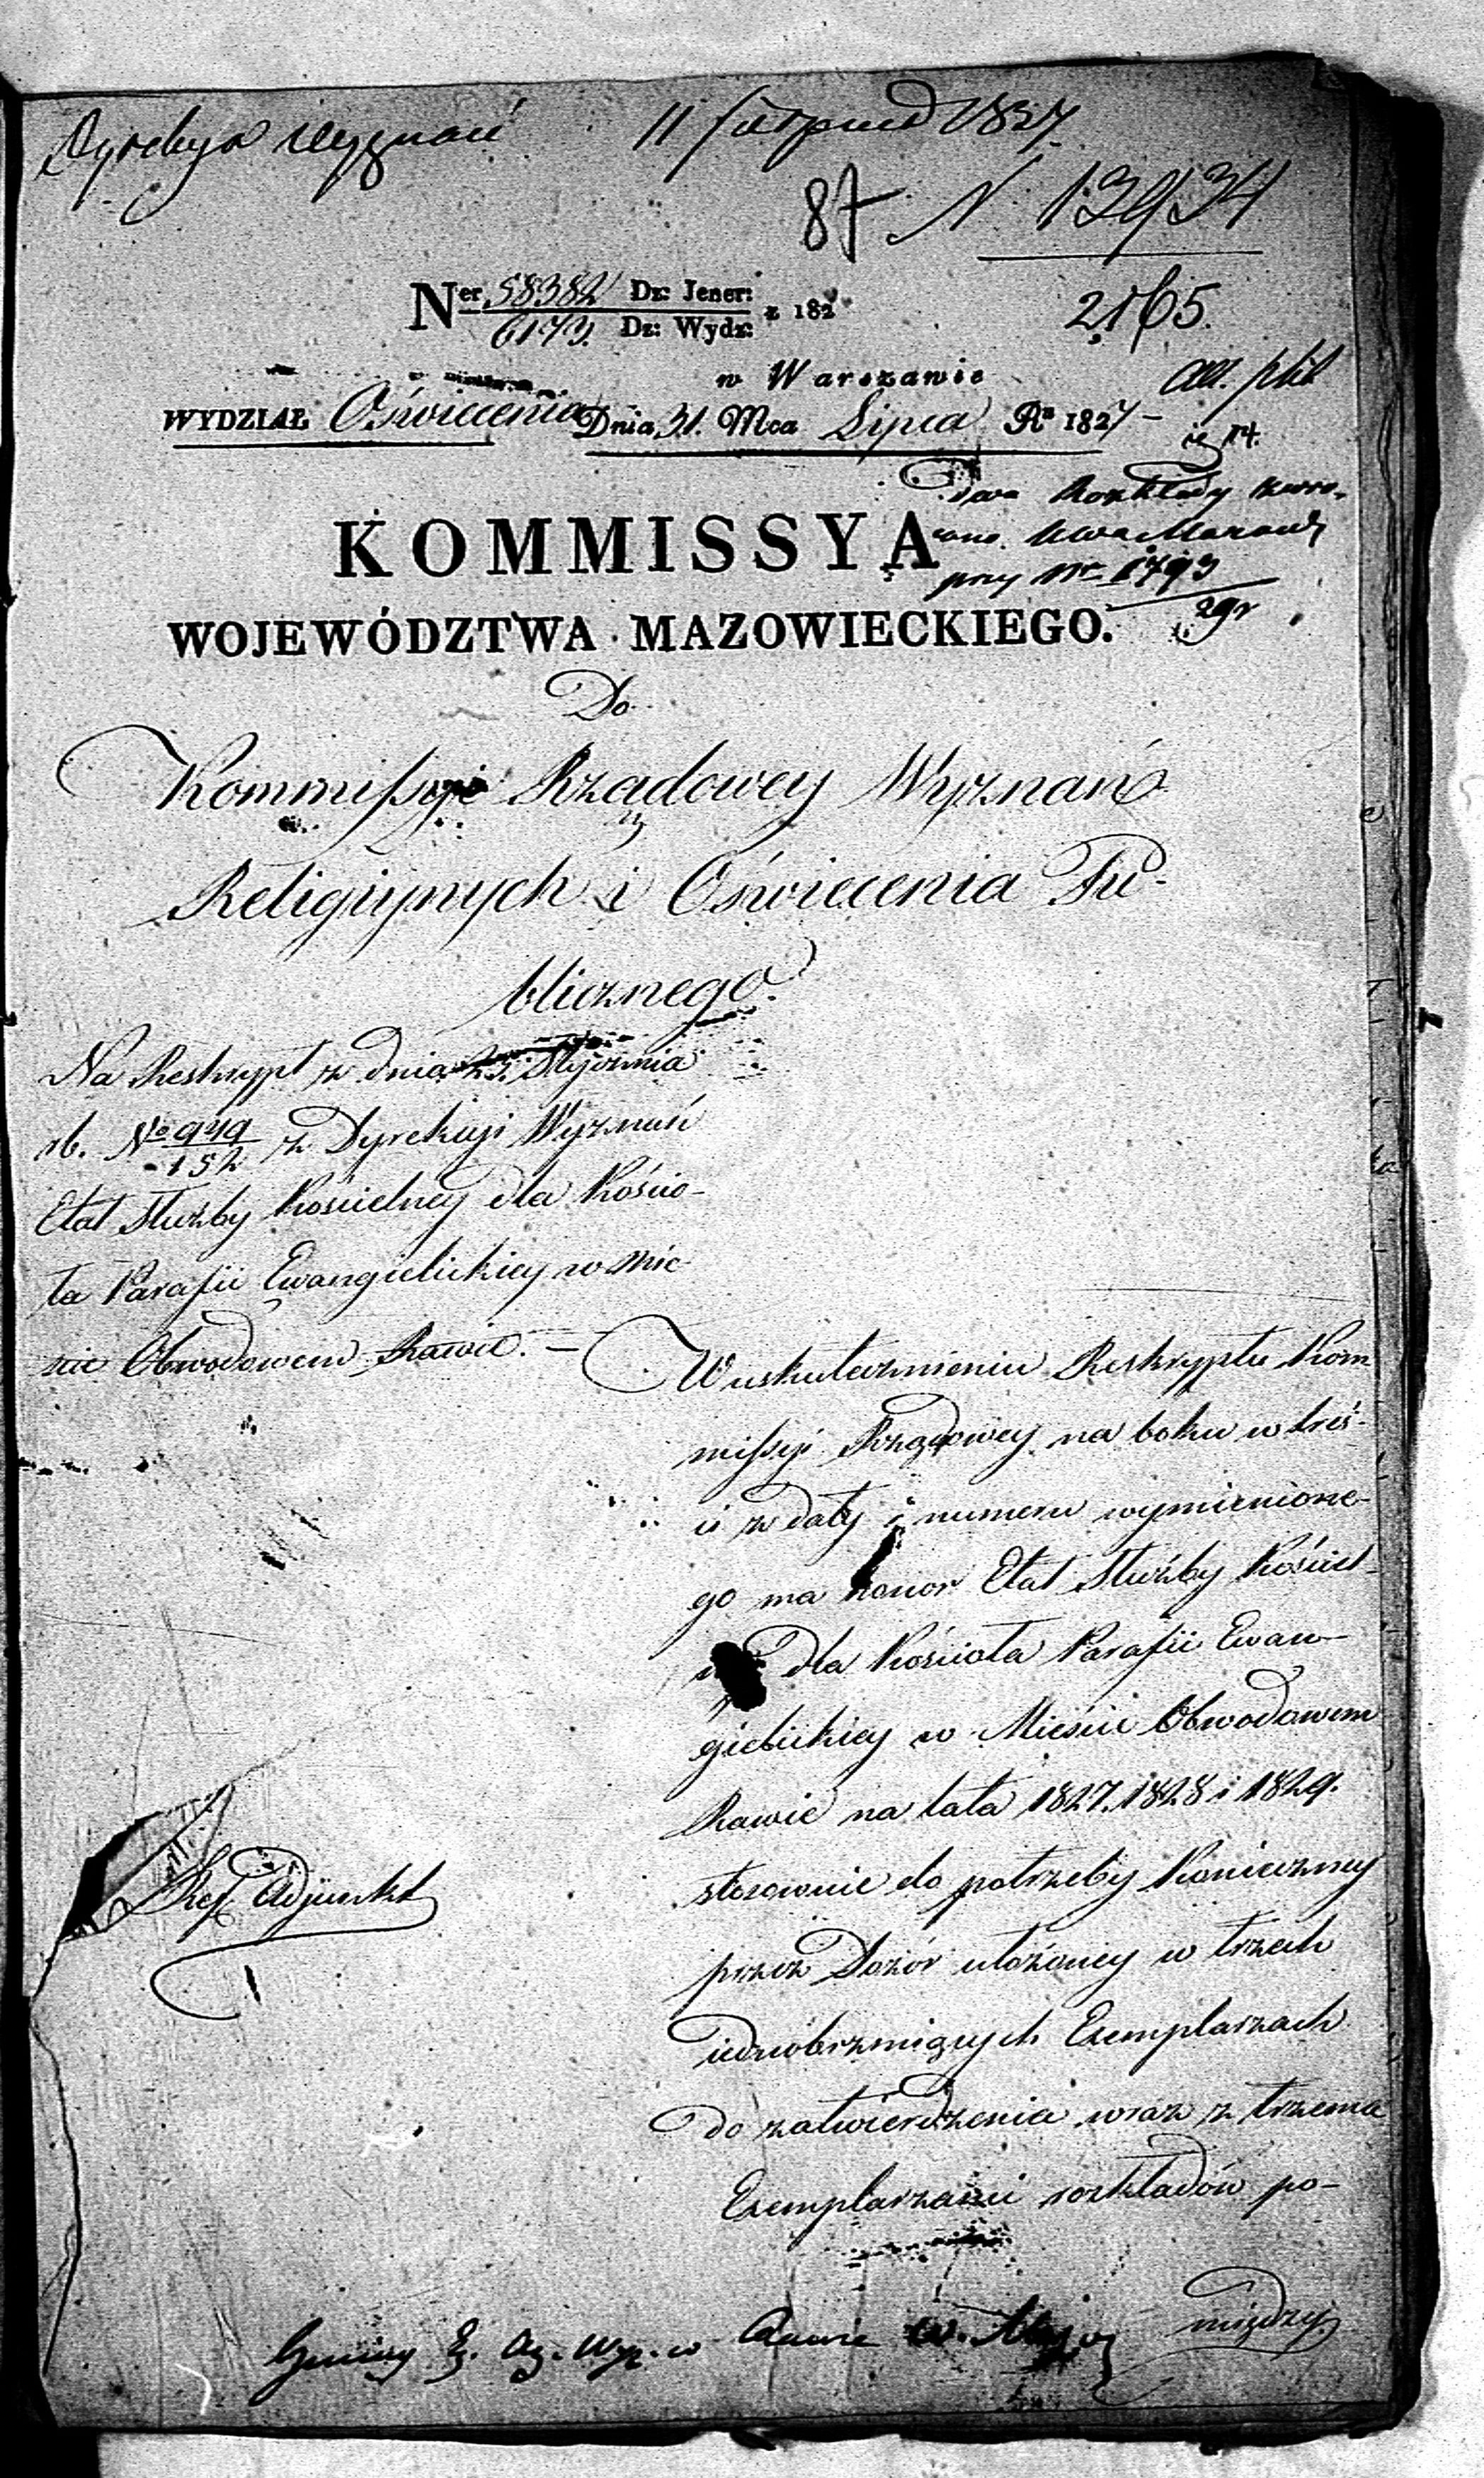 Dyrekcya Wyznań 11 Sierpnia 1827
87 N 13934
2165.
Ner 58382 Dz: Jener:
6173. Dz: Wydz: z 182
w Warszawie
WYDZIAŁ Oświecenia Dnia 31. Mca Lipca Ru 1827
Dwa Rozkłady
przy Nr 1793
KOMMISSYA
WOJEWÓDZTWA MAZOWIECKIEGO.
Do
Kommissyi Rządowey Wyznań
Religiynych i Oświecenia Pu-
blicznego.
Na Reskrypt z dnia 23. Stycznia
rb. No 949/152 z Dyrekcyi Wyznań
Etat Służby Kościelney dla Kościo-
ła Parafii Ewangielickiey w Mie-
ście Obwodowem Rawie. —
W uskutecznieniu Reskryptu Kom
missyi Rządowey na boku w treś-
ci z daty i numeru wymienione-
go ma honor Etat Służby Kościel-
dla Kościoła Parafii Ewan-
gielickiey w Mieście Obwodowem
Rawie na lata 1827. 1828 i 1829.
stosownie do potrzeby konieczney
przez Dozór ułożoney w trzech
iednobrzmiących Exemplarzach
do zatwierdzenia wraz z trzema
Exemplarzami rozkładów po-
między
Ref. Adjunkt
Gminy Ez. Ag. Wyz. w Rawie